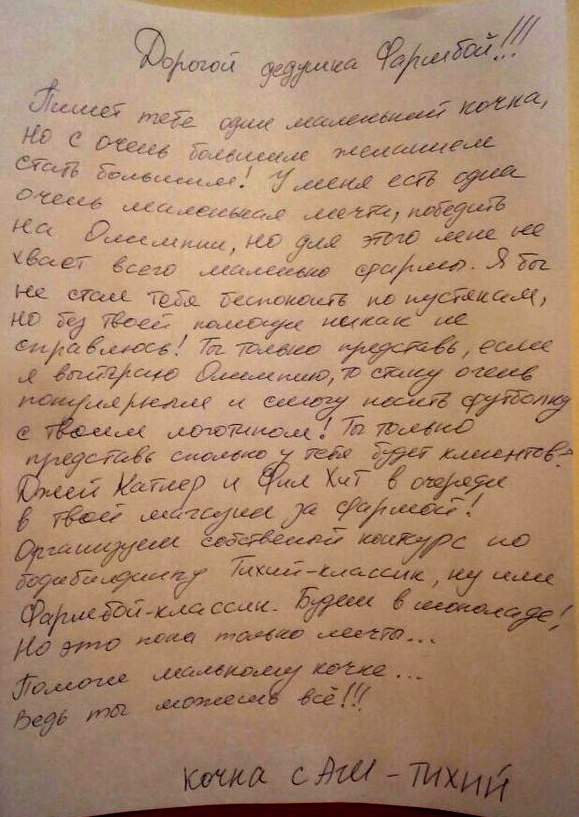 Дорогой дедушка Фармбой!!!
Пишет тебе один маленький кочка,
но с очень большим желанием
стать большим! У меня есть одна
очень маленькая мечта, победить
на Олимпии, но для этого мне не
хвает всего маленько фармы. Я бы
не стал тебя беспокоить по пустякам,
но без твоей помощи никак не
справлюсь! Ты только представь, если
я выиграю Олимпию, то стану очень
популярным и смогу носить футболку
с твоим логотипом! Ты только
представь сколько у тебя будет клиентов?
Джей Катлер и Фил Хит в очереди
в твой магазин за фармой!
Организуем собственый конкурс по
бодибилдингу Тихий-классик, ну или
Фармбой-классик. Будем в шоколаде!
Но это пока только мечты...
Помоги малькому кочке...
Ведь ты можешь всё!!!
кочка с АШ - ТИХИЙ